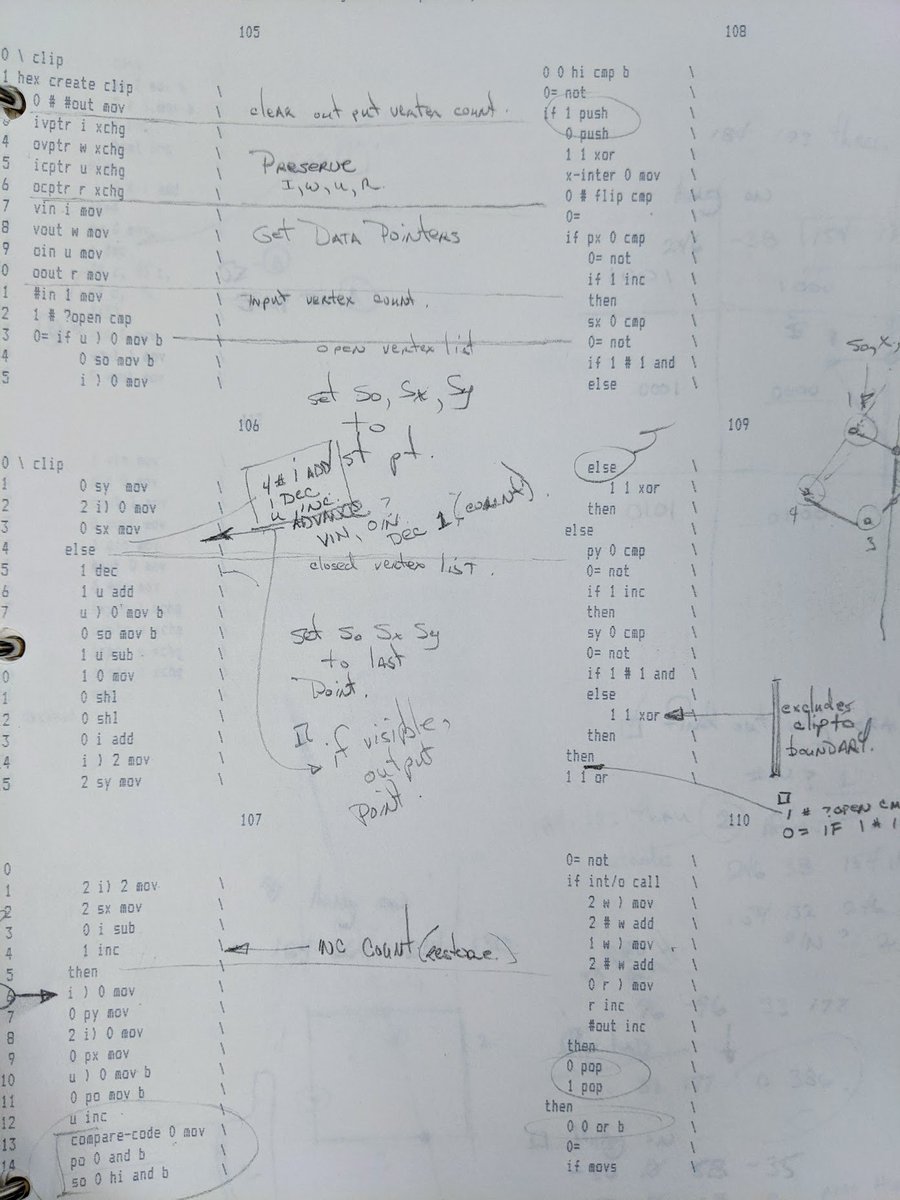 105
0 \ clip
1 hex create clip
0 # #out mov \ clear out put vertex count.
3 ivptr i xchg \
4 ovptr w xchg \ PRESERVE
5 icptr u xchg \ I, W, U, R.
6 ocptr r xchg \
7 vin i mov \
8 vout w mov \ GET DATA POINTERS
9 oin u mov \
0 oout r mov \
1 #in 1 mov \ input vertex count.
2 1 # ?open cmp \
3 0= if u ) 0 mov b \ open vertex list
4 0 so mov b \
5 i ) 0 mov \ set So, Sx, Sy
to
1st pt.
106
0 \ clip
1 0 sy mov \
2 2 i) 0 mov \
3 0 sx mov \
4 # i ADD
1 DEC
u INC.
ADVANCE ?
VIN, OIN,
DEC 1 (count).
4 else \
closed vertex LIST.
5 1 dec \
6 1 u add \
7 u ) 0 mov b \
8 0 so mov b \ set So Sx Sy
9 1 u sub \ to LAST
0 1 0 mov \ Point.
1 0 shl \
2 0 shl \
3 0 i add \ if visible,
4 i ) 2 mov \ output
5 2 sy mov \ Point.
107
0 \
1 2 i) 2 mov \
2 2 sx mov \
3 0 i sub \
4 1 inc \ INC COUNT (restore.)
5 then \
6 i ) 0 mov \
7 0 py mov \
8 2 i) 0 mov \
9 0 px mov \
10 u ) 0 mov b \
11 0 po mov b \
12 u inc \
13 compare-code 0 mov \
14 po 0 and b \
so 0 hi and b \
108
0 0 hi cmp b \
0= not \
if 1 push \
0 push \
1 1 xor \
x-inter 0 mov \
0 # flip cmp \
0= \
if px 0 cmp \
0= not \
if 1 inc \
then \
sx 0 cmp \
0= not \
if 1 # 1 and \
else \
109
else \
1 1 xor \
then \
else \
py 0 cmp \
0= not \
if 1 inc \
then \
sy 0 cmp \
0= not \
if 1 # 1 and \
else \
1 1 xor \
excludes
clip to
boundary.
then \
then \
1 1 or \
1 # ?OPEN CM
0= IF 1 # 1
1
4
3
110
0= not \
if int/o call \
2 w ) mov \
2 # w add \
1 w ) mov \
2 # w add \
0 r ) mov \
r inc \
#out inc \
then \
0 pop \
1 pop \
then \
0 0 or b \
0= \
if movs \